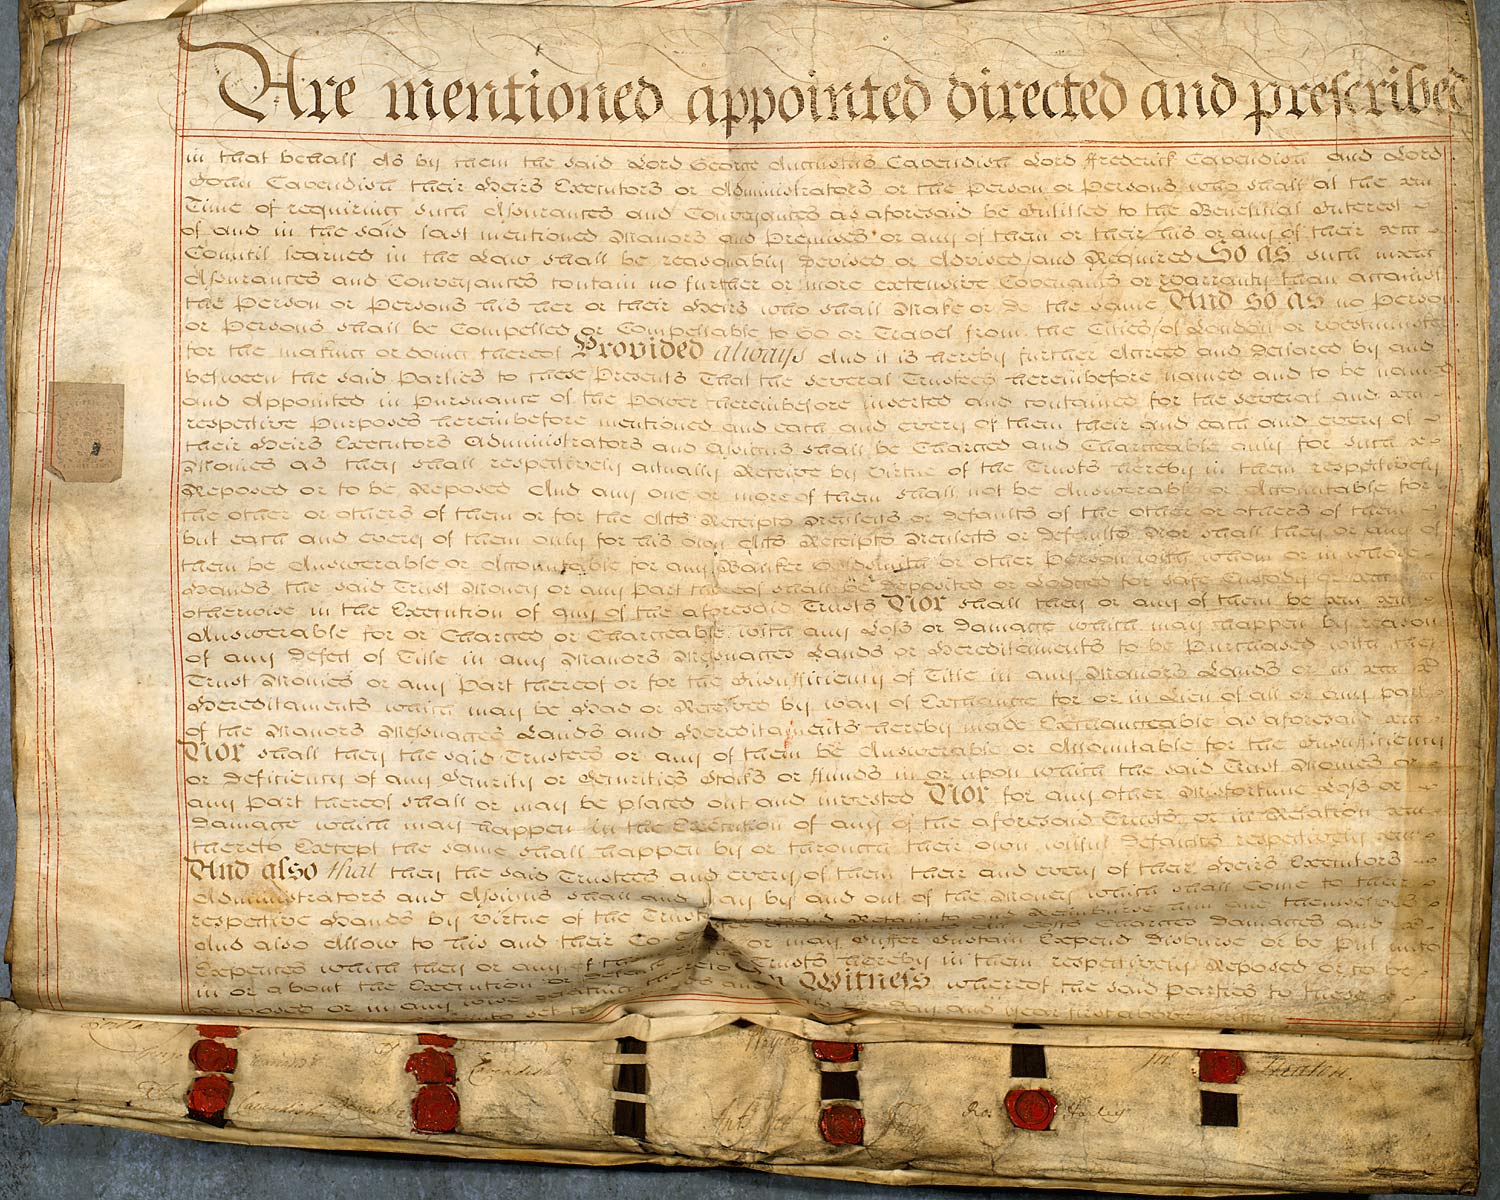 Are mentioned appointed directed and prescribed
in that behalf As by them the said Lord George Augustus Cavendish Lord Frederick Cavendish and Lord
John Cavendish their Heirs Executors or Administrators or the Person or Persons who shall at the
Time of requiring such Assurances and Conveyances as aforesaid be Intitled to the Beneficial Interest
of and in the said last mentioned Manors and Premises or any of them or their his or any of their
Council learned in the Law shall be reasonably devised or Advised and Required So as such
Assurances and Conveyances contain no further or more extensive Covenants or Warranty than against
the Person or Persons his her or their Heirs who shall Make or do the same And so as no Person
or Persons shall be Compelled or Compellable to Go or Travel from the Cities of London or Westminster
for the making or doing thereof Provided always And it is hereby further Agreed and Declared by and
between the said Parties to these Presents That the several Trustees hereinbefore named and to be named
and Appointed in Pursuance of the Power hereinbefore inserted and contained for the several and
respective Purposes hereinbefore mentioned and each and every of them their and each and every of
their Heirs Executors Administrators and Assigns shall be Charged and Chargeable only for such
Monies as they shall respectively actually Receive by Virtue of the Trusts hereby in them respectively
Reposed or to be Reposed And any one or more of them shall not be Answerable or Accountable for
the other or others of them or for the Acts Receipts Neglects or Defaults of the other or others of them
but each and every of them only for his own Acts Receipts Neglects or Defaults Nor shall they or any of
them be Answerable or Accountable for any Banker Goldsmith or other Person with whom or in whose
Hands the said Trust Money or any Part thereof shall be Deposited or Lodged for safe Custody or
otherwise in the Execution of any of the aforesaid Trusts Nor shall they or any of them be
Answerable for or Charged or Chargeable with any Loss or Damage which may happen by reason
of any Defect of Title in any Manors Messuages Lands or Hereditaments to be Purchased with the
Trust Monies or any Part thereof or for the Insufficiency of Title in any Manors Lands or
Hereditaments which may be Had or Received by way of Exchange for or in Lieu of all or any part
of the Manors Messuages Lands and Hereditaments hereby made Exchangeable as aforesaid
Nor shall they the said Trustees or any of them be Answerable or Accountable for the Insufficiency
or Deficiency of any Security or Securities Stocks or Funds in or upon which the said Trust Monies or
any Part thereof shall or may be placed out and invested Nor for any other Misfortune Loss or
Damage which may happen in the Execution of any of the aforesaid Trusts or in Relation
thereto Except the same shall happen by or through their own wilful Defaults respectively
And also that they the said Trustees and every of them their and every of their Heirs Executors
Administrators and Assigns shall and may by and out of the Money which shall come to their
respective Hands by Virtue of the Trusts Retain to and Reimburse him and themselves
And also Allow to his and their all Costs Charges Damages and
Expences which they or any of or may Suffer Sustain Expend Disburse or be Put unto
in or about the Execution Trusts hereby in them respectively Reposed or to be
Reposed or in any wise relating thereto In Witness whereof the said Parties to these
set and year first above
Cavendish
Cavendish
Heaton.
Cavendish